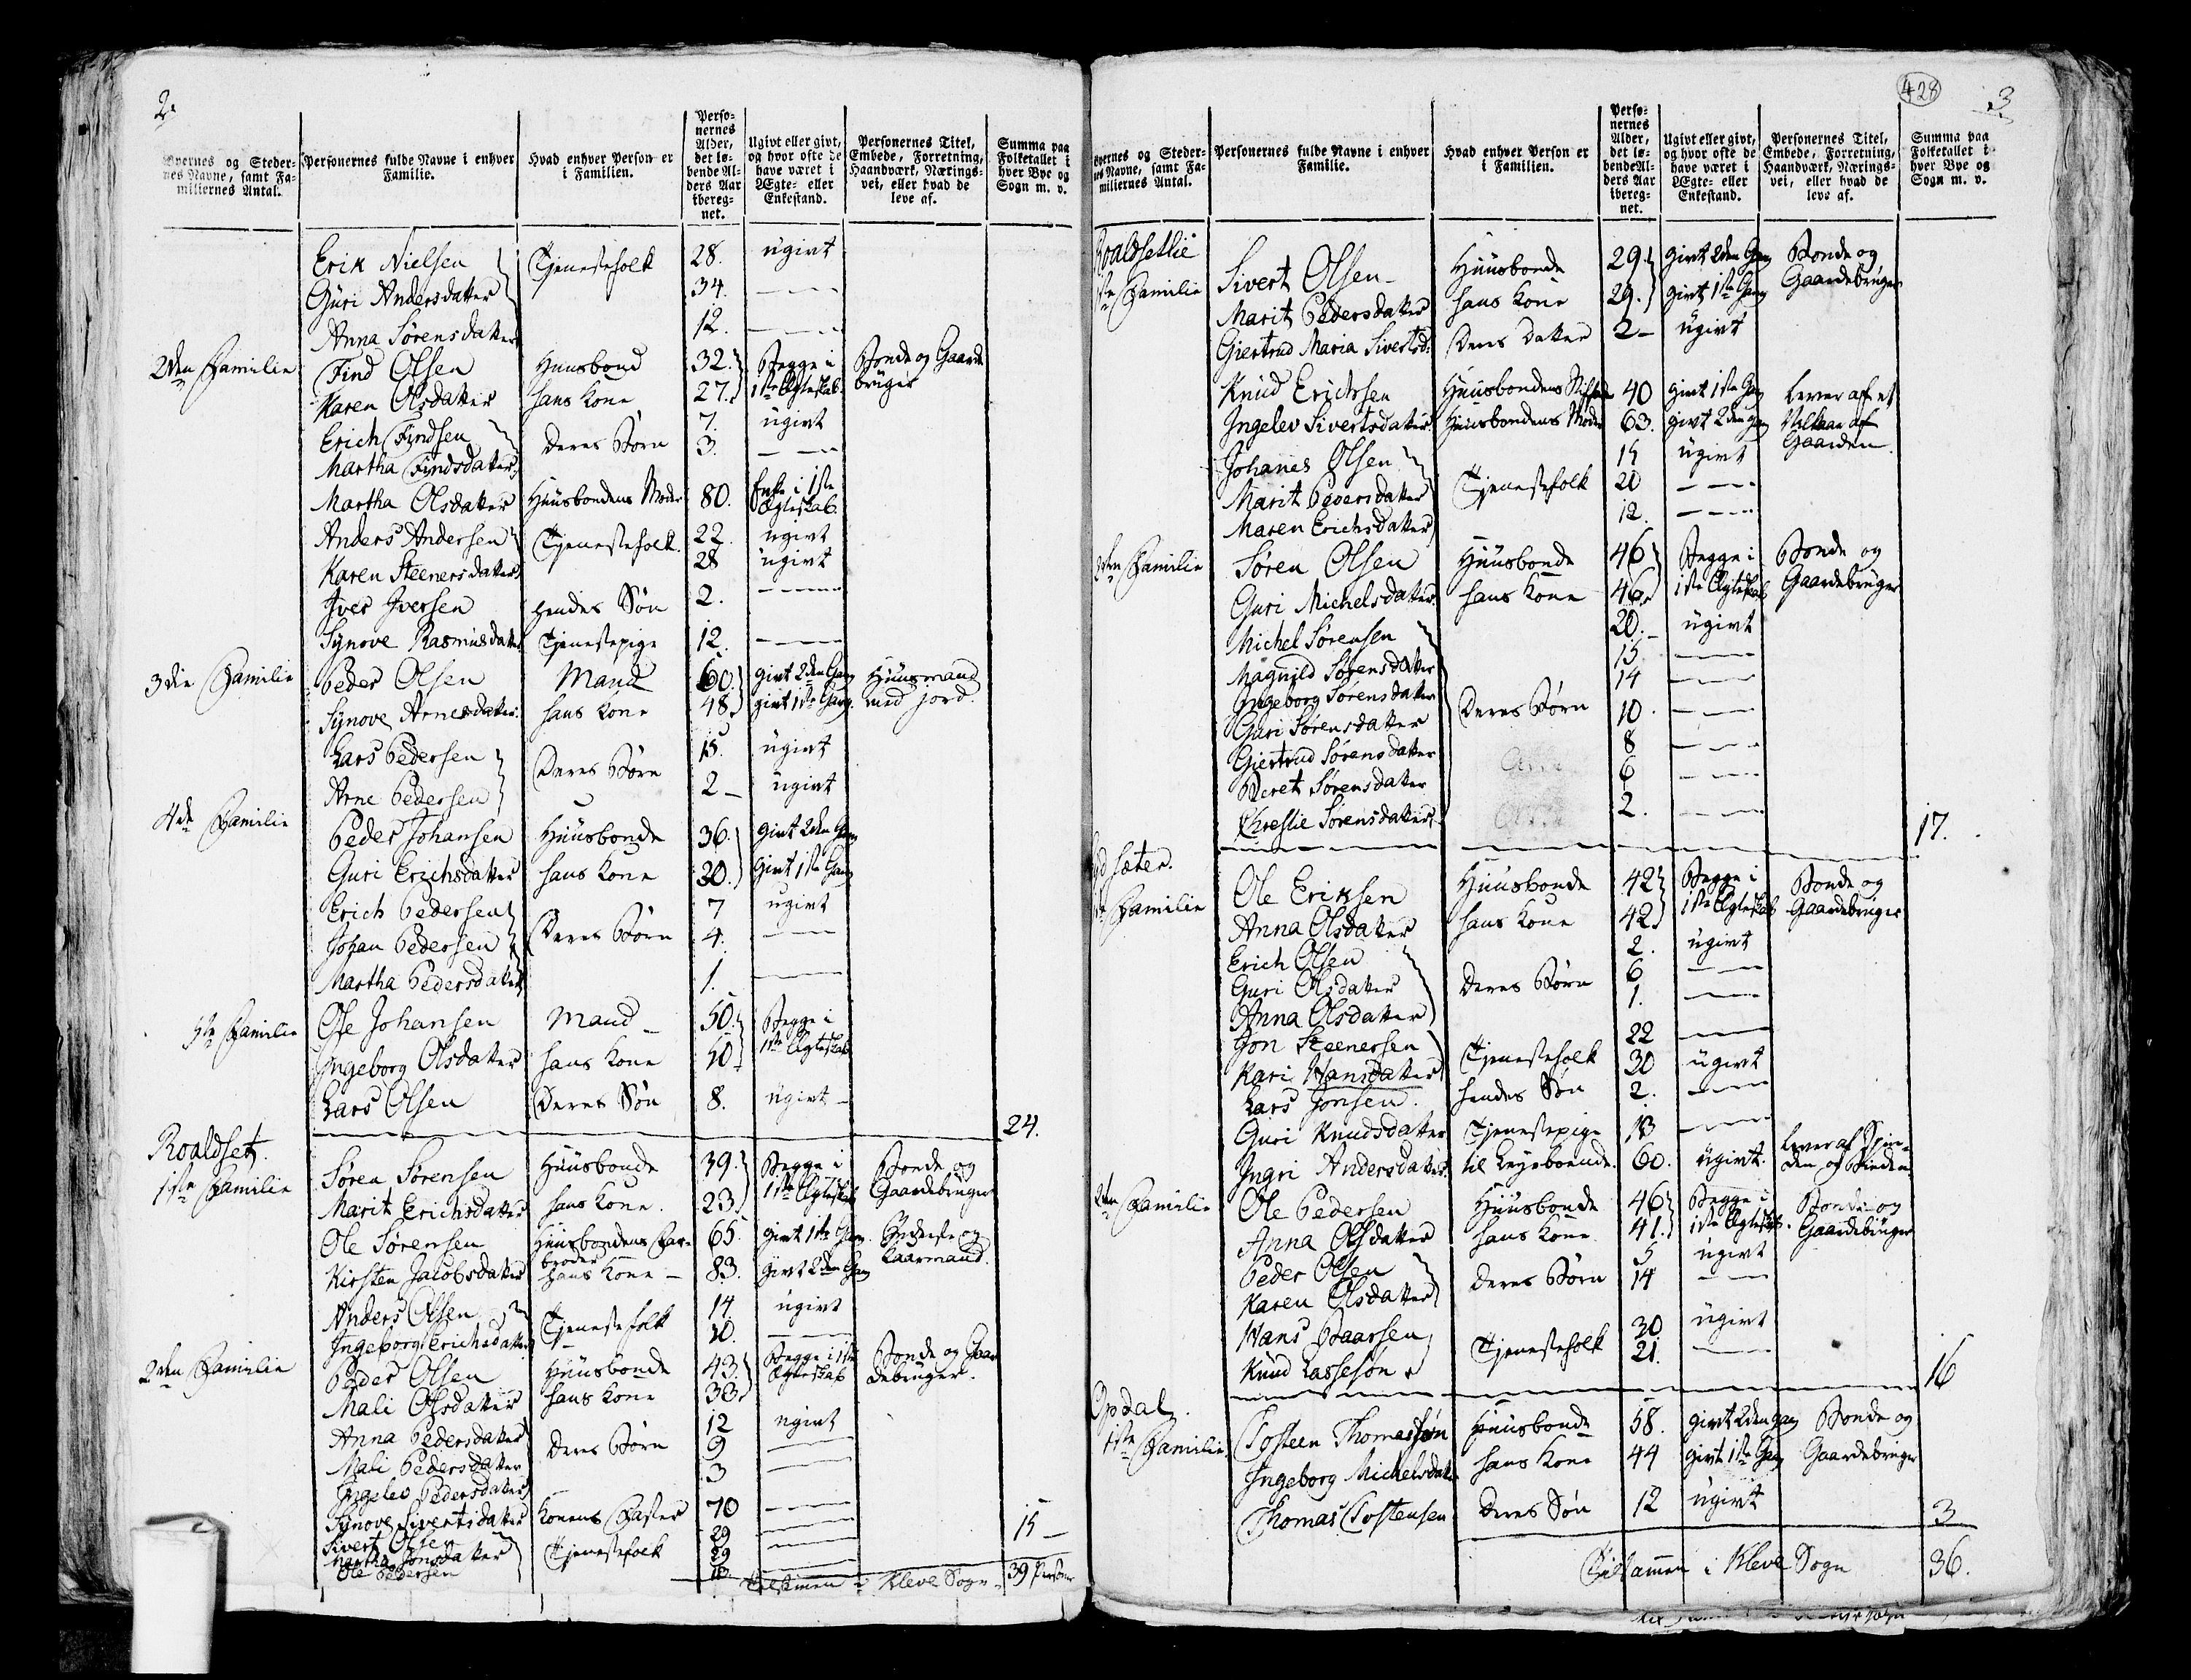 2.
Byernes og Steder- Personernes fulde Navne i enhver Hvad enhver Person er Perso- Ugivt eller givt, Personernes Titel, Summa paa
nes Navne, samt Fa- Familie. i Familien. nernes og hvor ofte de Embede, Forretning, Folketallet i
miliernes Antal. Alder, have været i Haandværk, Nærings- hver Bye og
det lø- Ægte- eller vei, eller hvad de Sogn m. v.
bende Al- Enkestand. leve af.
ders Aar
ibereg-
net.
Erik Nielsen Tjenestefolk 28. ugivt
Guri Andersdatter 34. — —
Anna Sørensdatter 12. — —
2den Familie Find Olsen Huusbond 32. Begge i Bonde og Gaarde
Karen Olsdatter hans Kone 27. 1ste Egteskab bruger
Erich Findsen 7. ugivt
Martha Findsdatter Deres Børn 3. — —
Martha Olsdatter Huusbondens Moder 80. Enke i 1ste Ægteskab
Anders Andersen Tjenestefolk. 22. ugivt
Karen Steenersdatter 28 ugivt
Iver Iversen hendes Søn 2. — —
Synove Rasmusdatter Tjenestepige 12. — —
3die Familie Peder Olsen Mand 60. givt 2den Gang Huusmand
Synove Arnesdatter hans Kone 48. givt 1ste Gang. med jord.
Lars Pedersen Deres Børn 15. ugivt
Arne Pedersen 2 — ugivt
4de Familie Peder Johansen Huusbonde 36. Givt 2den Gang
Guri Erichsdatter hans Kone 30. Givt 1ste Gang
Erich Pedersen 7 ugivt
Johan Pedersen Deres Børn 4. — —
Martha Pedersdatter 1. — —
5te Familie Ole Johansen Mand — 50. Begge i
Ingeborg Olsdatter hans Kone 50 1ste Egteskab
Lars Olsen Deres Søn 8. ugivt —
24.
Roaldset.
1ste Familie Søren Sørensen Huusbonde 39. Begge i Bonde og
Marit Erichsdatter hans Kone. 23. 1ste Egteskab Gaardebruger
Ole Sørensen Huusbondens Far- 65. givt 1ste Gang.
broder
Kirsten Jacobsdatter hans Kone — 83. givt 2den Gang
Anders Olsen 14. ugivt
Ingeborg Erichsdatter Tjenestefolk
2den Familie Peder Olsen Huusbonde 43. Begge i 1ste Bonde og Gaar
Mali Olsdatter hans Kone 33. Egteskab debruger.
Anna Pedersdatter 12 ugivt
Mali Pedersdatter Deres Børn 9 — —
Ingelev Pedersdatter 3 — —
Synove Sivertsdatter Konens Faster 70 — —
Sivert Olsen 29 — —
Martha Jonsdatter Tjenestefolk 29 — —
Ole Pedersen
15 —
Tilsamen i Kleve Sogn — 39 Personer
428 3
Byernes og Steder- Personernes fulde Navne i enhver Hvad enhver Person er Perso- Ugivt eller givt, Personernes Titel, Summa paa
nes Navne, samt Fa- Familie. i Familien. nernes og hvor ofte de Embede, Forretning, Folketallet i
miliernes Antal. Alder, have været i Haandværk, Nærings- hver Bye og
det lø- Ægte- eller vei, eller hvad de Sogn m. v.
bende Al- Enkestand. leve af.
ders Aar
ibereg-
net.
Roaldsetlie
1ste Familie Sivert Olsen — Huusbonde 29. Givt 2den Gang Bonde og
Marit Pedersdatter hans Kone 29. givt 1ste Gang Gaardebruger
Giertrud Maria Sivertsd: Deres Datter 2 — ugivt
Knud Erichsen 40 givt 1ste Gang Lever af et
Ingelev Sivertsdatter Huusbondens Moder 63. givt 2den Gang Vilkaar af
Gaarden.
Johanes Olsen 15 ugivt
Marit Pedersdatter Tjenestefolk 20 — —
Maren Erichsdatter 12. — —
2den Familie Søren Olsen Huusbonde 46 Begge i Bonde og
Guri Michelsdatter hans Kone 46. 1ste Egteskab Gaardebruger
Michel Sørensen 20. — ugivt
Magnild Sørensdatter 15. — —
Ingeborg Sørensdatter 14 — —
Guri Sørensdatter Deres Børn 10. — —
Giertrud Sørensdatter 8 — —
Beret Sørensdatter 6 — —
Chreslie Sørensdatter 2. — —
17.
1ste Familie Ole Eriksen Huusbonde 42 Begge i Bonde og
Anna Olsdatter hans Kone 42. 1ste Egteskab Gaardebruger
Erich Olsen 2. ugivt
Guri Olsdatter Deres Børn 6 — —
Anna Olsdatter 1. — —
Jon Steenersen 22 — —
Kari Hansdatter Tjenestefolk 30 ugivt
Lars Jonsen. hendes Søn 2. — —
Guri Knudsdatter Tjenestepige 13 — —
Ingri Andersdatter til Leye boende. 60. ugivt. Lever af Spin-
den og Binden
2den Familie Ole Pedersen Huusbonde 46 Begge i Bonde og
Anna Olsdatter hans Kone 41. 1ste Egteskab. Gaardebruger
Peder Olsen 5 ugivt
Karen Olsdatter Deres Børn 14 — —
Hans Baarsen 30 ugivt
Knud Lassesøn Tjenestefolk 21. — —
16
Opdal.
1ste Familie. Tosteen Thomassøn Huusbonde 58. givt 2den Gang Bonde og
Ingeborg Michelsdatter hans Kone 44 givt 1ste Gang Gaardebruger
Thomas Tostensen Deres Søn 12 ugivt
3
Tilsamen i Kleve Sogn 36.